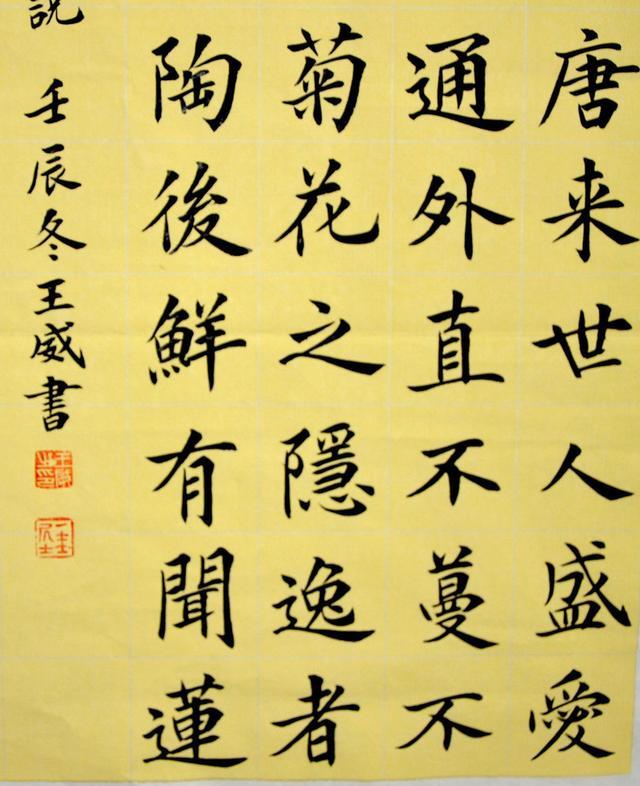 唐来世人盛愛
通外直不蔓不
菊花之隱逸者
陶後鮮有聞蓮
説
壬辰冬王威書